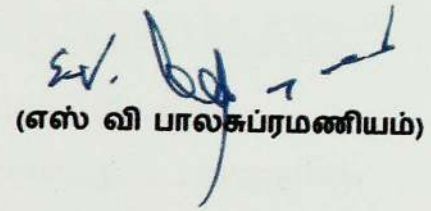 (எஸ் வி பாலசுப்ரமணியம்)